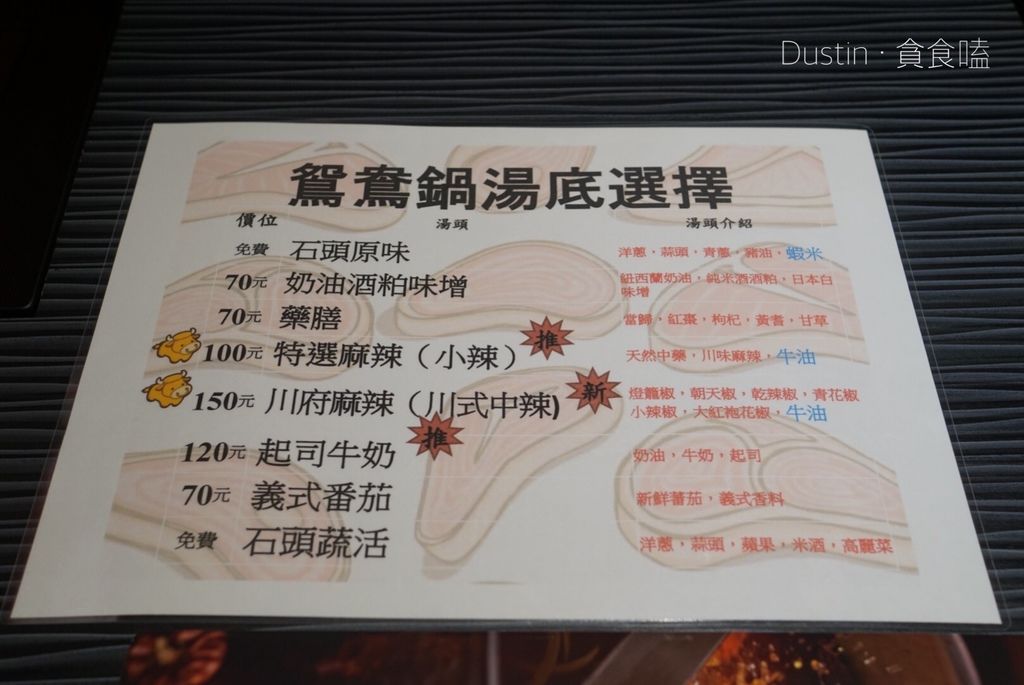 Dustin · 貪食嗑
鴛鴦鍋湯底選擇
價位 湯頭 湯頭介紹
免費 石頭原味 洋蔥，蒜頭，青蔥，豬油，蝦米
70元 奶油酒粕味增 紐西蘭奶油，純米酒酒粕，日本白
味增
70元 藥膳 當歸，紅棗，枸杞，黃耆，甘草
100元 特選麻辣（小辣） 推 天然中藥，川味麻辣，牛油
150元 川府麻辣（川式中辣) 新 燈籠椒，朝天椒，乾辣椒，青花椒
小辣椒，大紅袍花椒，牛油
120元 起司牛奶 推 奶油，牛奶，起司
70元 義式番茄 新鮮蕃茄，義式香料
免費 石頭蔬活 洋蔥，蒜頭，蘋果，米酒，高麗菜